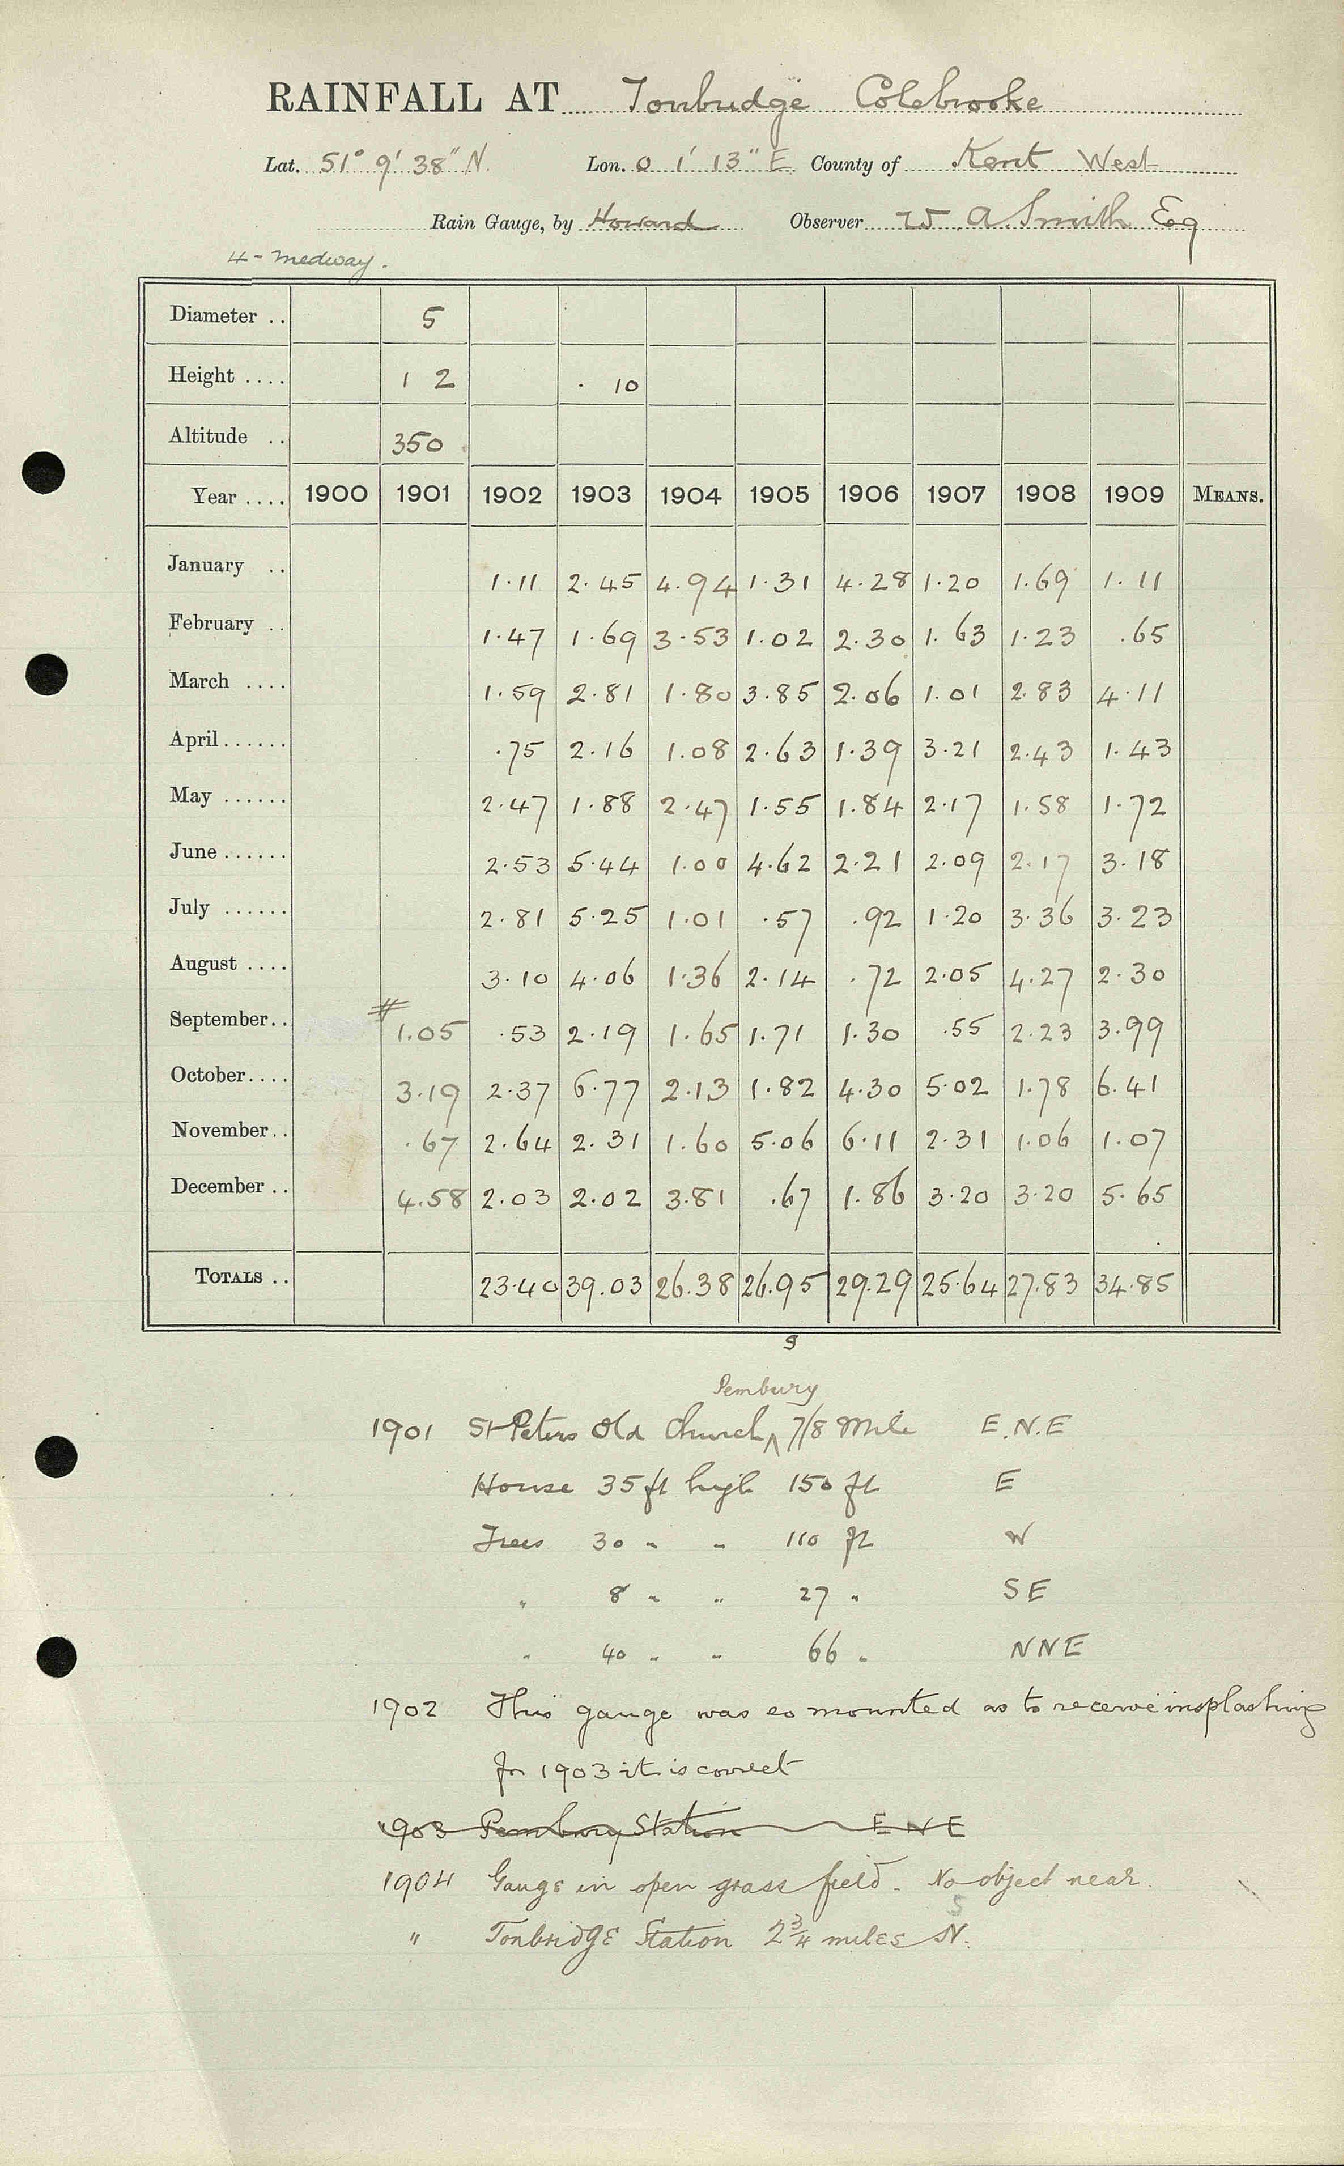 RAINFALL AT Tonbridge Colebrooke
Lat. 51° 9' 38" N. Lon. 0 1' 13" E. County of Kent West
Rain Gauge, by Howard Observer W. A. Smith Esq
4 - Medway.
Diameter .. 5
Height .... 1 2 . 10
Altitude .. 350
Year .... 1900 1901 1902 1903 1904 1905 1906 1907 1908 1909 MEANS.
January .. 1.11 2.45 4.94 1.31 4.28 1.20 1.69 1.11
February .. 1.47 1.69 3.53 1.02 2.30 1.63 1.23 .65
March .... 1.59 2.81 1.80 3.85 2.06 1.01 2.83 4.11
April...... .75 2.16 1.08 2.63 1.39 3.21 2.43 1.43
May ...... 2.47 1.88 2.47 1.55 1.84 2.17 1.58 1.72
June ...... 2.53 5.44 1.00 4.62 2.21 2.09 2.17 3.18
July ...... 2.81 5.25 1.01 .57 .92 1.20 3.36 3.23
August .... 3.10 4.06 1.36 2.14 .72 2.05 4.27 2.30
September.. # 1.05 .53 2.19 1.65 1.71 1.30 .55 2.23 3.99
October.... 3.19 2.37 6.77 2.13 1.82 4.30 5.02 1.78 6.41
November.. .67 2.64 2.31 1.60 5.06 6.11 2.31 1.06 1.07
December .. 4.58 2.03 2.02 3.81 .67 1.86 3.20 3.20 5.65
TOTALS .. 23.40 39.03 26.38 26.95 29.29 25.64 27.83 34.85
9
Pembury
1901 St Peters Old Church ^ 7/8 Mile E.N.E
House 35 ft high 150 ft E
Trees 30 " " 110 ft W
" 8 " " 27 " SE
" 40 " " 66 " NNE
1902 This gauge was so mounted as to receive insplashing
for 1903 it is correct
1903 Pembury Station E N E
1904 Gauge in open grass field. No object near.
S
" Tonbridge Station 2 3/4 miles N.